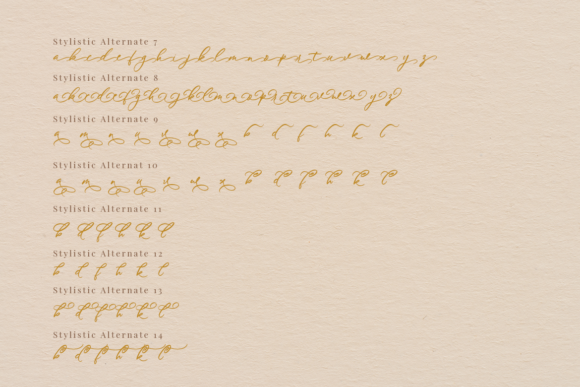 Stylistic Alternate 7
a b c d e f g h i j k l m n o p q r s t u v w x y z
Stylistic Alternate 8
a b c d e f g h i j k l m n o p q r s t u v w x y z
Stylistic Alternate 9
a m n u v x b d f h k l
Stylistic Alternat 10
b d f h k l
Stylistic Alternate 11
b d f h k l
Stylistic Alternate 12
b d f h k l
Stylistic Alternate 13
b d f h k l
Stylistic Alternate 14
b d f h k l